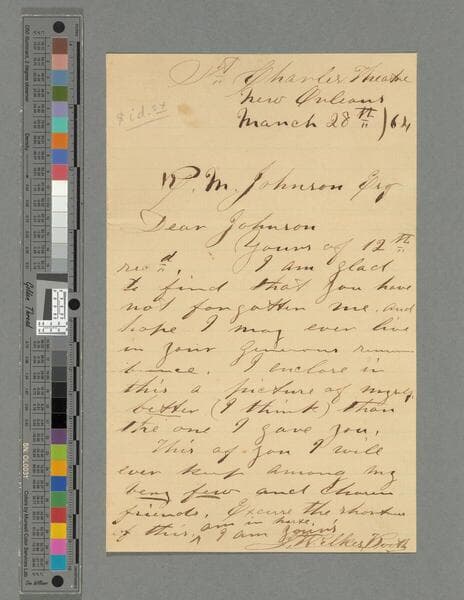 St Charles Theatre
New Orleans
March 28th / 64
R. M. Johnson Esq
Dear Johnson
Yours of 12th
recd. I am glad
to find that you have
not forgotten me, and
hope I may ever live
in your generous remem
brance. I enclose in
this a picture of myself
better (I think) than
the one I gave you.
This of you I will
ever keep among my
very few and chosen
friends. Excuse the shortness
of this, am in haste.
I am Yours
J. Wilkes Booth
Golden Thread